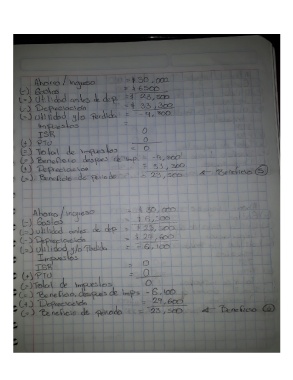 Ahorro / ingreso = $ 30,000
(-) Gastos = $ 6500
(=) Utilidad antes de dep = $ 23,500
(-) Depreciacion = $ 33,300
(=) Utilidad y/o Perdida =
Impuestos =
ISR 0
(+) PTU 0
(=) Total de impuestos = 0
(=) Beneficio despues de imp
(+) Depreciacion
(=) Beneficio de periodo = 23,500 ← Beneficio
Ahorro / ingreso = $ 30,000
(-) Gastos = $ 6,500
(=) Utilidad antes de dep = $ 23,500
(-) Depreciacion = $ 29,600
(=) Utilidad y/o Perdida = -6,100
Impuestos =
ISR 0
(+) PTU = 0
(=) Total de impuestos = 0
(=) Beneficio despues de imp = -6,100
(+) Depreciacion = 29,600
(=) Beneficio de periodo = 23,500 ← Beneficio